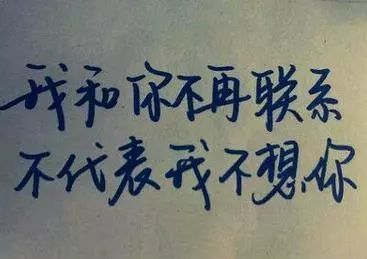 我和你不再联系
不代表我不想你